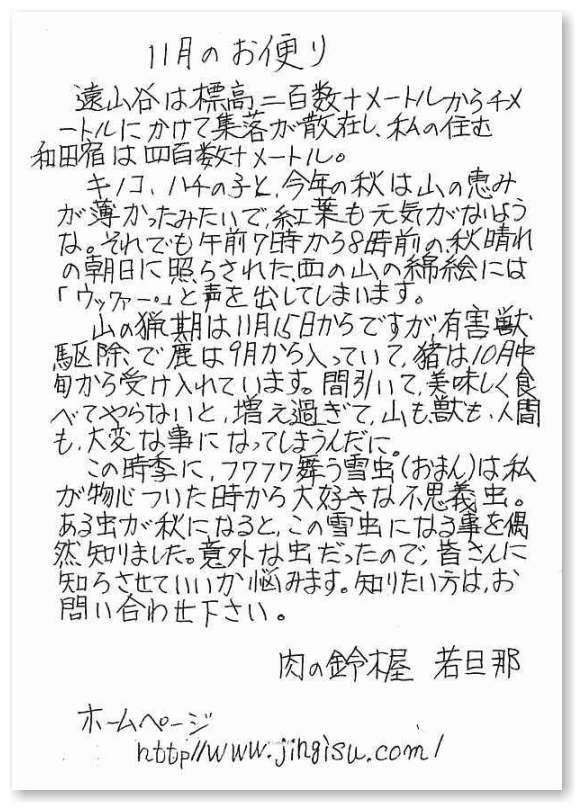 11月のお便り
遠山谷は標高二百数十メートルから千メ
ートルにかけて集落が散在し、私の住む
和田宿は四百数十メートル。
キノコ、ハチの子と、今年の秋は山の恵み
が薄かったみたいで、紅葉も元気がないよう
な。それでも午前7時から8時前の、秋晴れ
の朝日に照らされた、西の山の綿絵には
「ウッファー。」と声を出してしまいます。
山の猟期は11月15日からですが、有害獣
駆除、で鹿は9月から入っていて、猪は10月中
旬から受け入れています。間引いて、美味しく食
べてやらないと、増え過ぎて、山も、獣も、人間
も、大変な事になってしまうんだに。
この時季に、フワフワ舞う雪虫(おまん)は、私
が物心ついた時から大好きな不思義虫。
ある虫が秋になると、この雪虫になる事を偶
然知りました。意外な虫だったので、皆さんに
知らさせていいか悩みます。知りたい方は、お
問い合わせ下さい。
肉の鈴木屋 若旦那
ホームページ
http//www.jingisu.com/